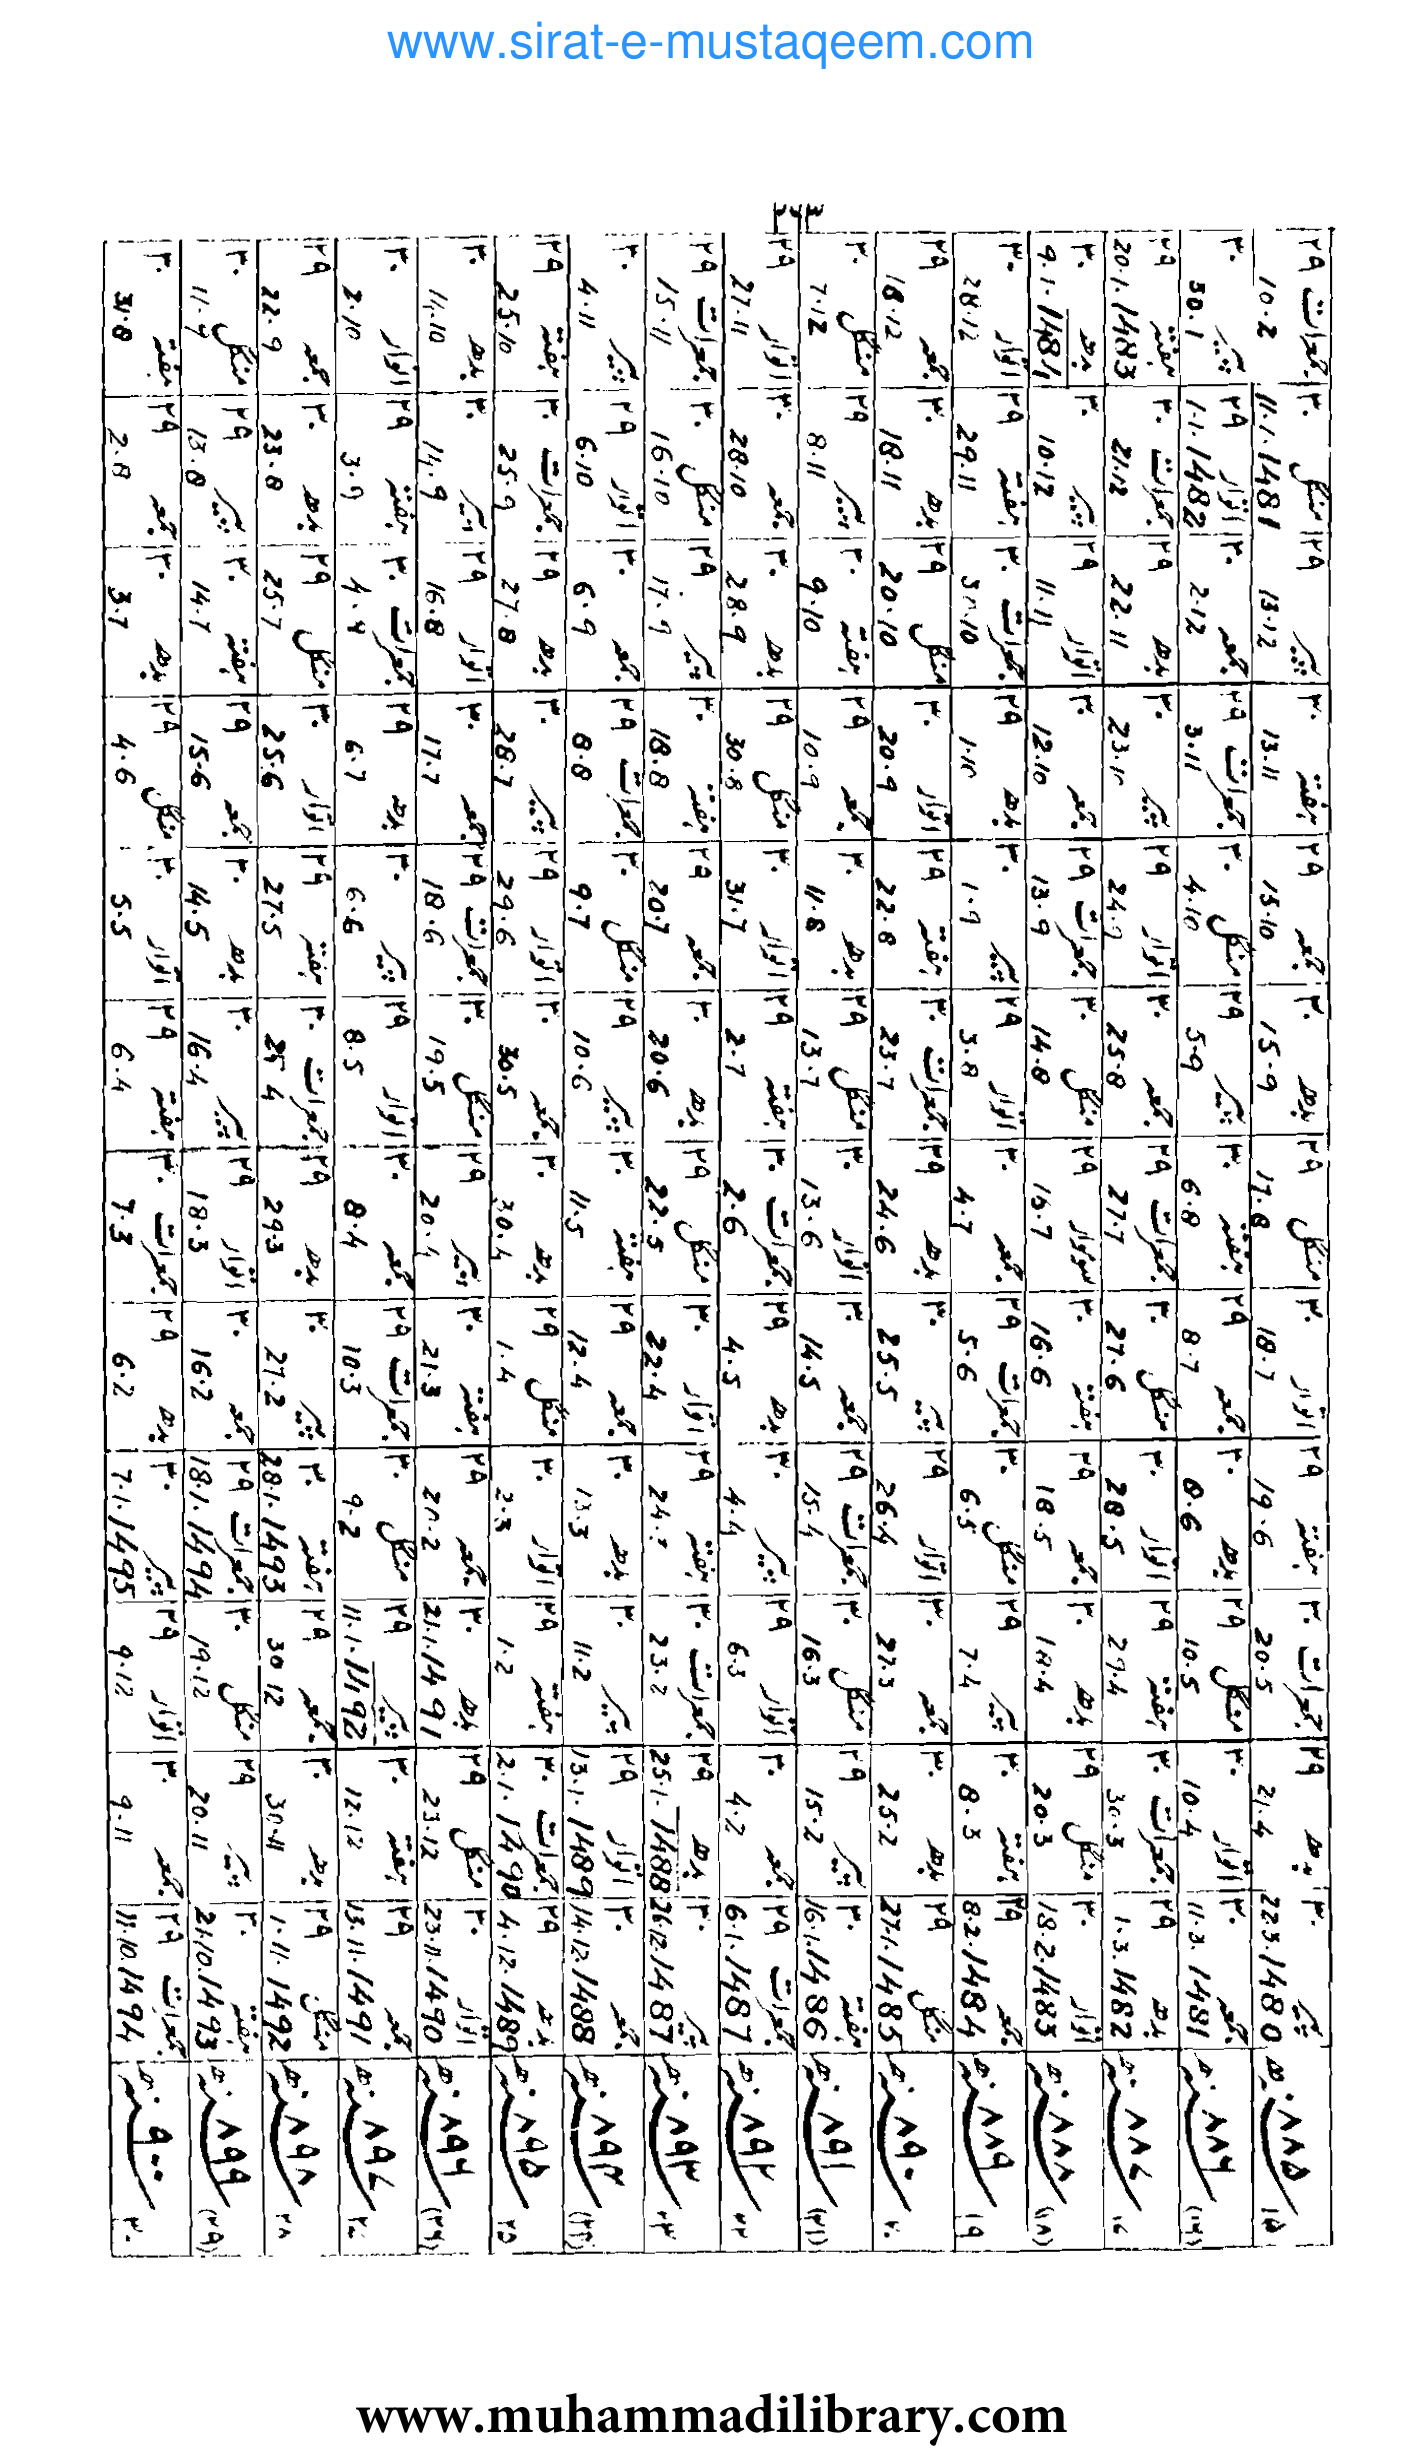 www.sirat-e-mustaqeem.com
۱۵ ۸۸۵ھ پیر ۳۰ 22.3.1480 بدھ ۲۹ 21.4 جمعرات ۳۰ 20.5 ہفتہ ۲۹ 19.6 اتوار ۳۰ 18.7 منگل ۲۹ 17.8 بدھ ۳۰ 15.9 جمعہ ۲۹ 15.10 ہفتہ ۳۰ 13.11 پیر ۲۹ 13.12 منگل ۳۰ 11.1.1481 جمعرات ۲۹ 10.2
(۱۶) ۸۸۶ھ جمعہ ۳۰ 11.3.1481 اتوار ۳۰ 10.4 منگل ۲۹ 10.5 بدھ ۳۰ 8.6 جمعہ ۲۹ 8.7 ہفتہ ۳۰ 6.8 پیر ۲۹ 5.9 منگل ۳۰ 4.10 جمعرات ۲۹ 3.11 جمعہ ۳۰ 2.12 اتوار ۲۹ 1.1.1482 پیر ۳۰ 30.1
۱۷ ۸۸۷ھ بدھ ۲۹ 1.3.1482 جمعرات ۳۰ 30.3 ہفتہ ۲۹ 29.4 اتوار ۳۰ 28.5 منگل ۳۰ 27.6 جمعرات ۲۹ 27.7 جمعہ ۳۰ 25.8 اتوار ۲۹ 24.9 پیر ۳۰ 23.10 بدھ ۲۹ 22.11 جمعرات ۳۰ 21.12 ہفتہ ۲۹ 20.1.1483
(۱۸) ۸۸۸ھ اتوار ۳۰ 18.2.1483 منگل ۲۹ 20.3 بدھ ۳۰ 18.4 جمعہ ۲۹ 18.5 ہفتہ ۳۰ 16.6 سوموار ۲۹ 16.7 منگل ۳۰ 14.8 جمعرات ۲۹ 13.9 جمعہ ۳۰ 12.10 اتوار ۲۹ 11.11 پیر ۳۰ 10.12 بدھ ۳۰ 9.1.1484
۱۹ ۸۸۹ھ جمعہ ۲۹ 8.2.1484 ہفتہ ۳۰ 8.3 پیر ۲۹ 7.4 منگل ۳۰ 6.5 جمعرات ۲۹ 5.6 جمعہ ۳۰ 4.7 اتوار ۲۹ 3.8 پیر ۳۰ 1.9 بدھ ۲۹ 1.10 جمعرات ۳۰ 30.10 ہفتہ ۲۹ 29.11 اتوار ۳۰ 28.12
۲۰ ۸۹۰ھ منگل ۲۹ 27.1.1485 بدھ ۳۰ 25.2 جمعہ ۳۰ 27.3 اتوار ۲۹ 26.4 پیر ۳۰ 25.5 بدھ ۲۹ 24.6 جمعرات ۳۰ 23.7 ہفتہ ۲۹ 22.8 اتوار ۳۰ 20.9 منگل ۲۹ 20.10 بدھ ۳۰ 18.11 جمعہ ۲۹ 18.12
(۲۱) ۸۹۱ھ ہفتہ ۳۰ 16.1.1486 پیر ۲۹ 15.2 منگل ۳۰ 16.3 جمعرات ۲۹ 15.4 جمعہ ۳۰ 14.5 اتوار ۳۰ 13.6 منگل ۲۹ 13.7 بدھ ۳۰ 11.8 جمعہ ۲۹ 10.9 ہفتہ ۳۰ 9.10 پیر ۲۹ 8.11 منگل ۳۰ 7.12
۲۲ ۸۹۲ھ جمعرات ۲۹ 6.1.1487 جمعہ ۳۰ 4.2 اتوار ۲۹ 6.3 پیر ۳۰ 4.4 بدھ ۲۹ 4.5 جمعرات ۳۰ 2.6 ہفتہ ۲۹ 2.7 اتوار ۳۰ 31.7 منگل ۲۹ 30.8 بدھ ۳۰ 28.9 جمعہ ۳۰ 28.10 اتوار ۲۹ 27.11
۲۳ ۸۹۳ھ پیر ۳۰ 26.12.1487 بدھ ۲۹ 25.1.1488 جمعرات ۳۰ 23.2 ہفتہ ۲۹ اتوار ۳۰ 22.4 منگل ۲۹ 22.5 بدھ ۳۰ 20.6 جمعہ ۲۹ 20.7 ہفتہ ۳۰ 18.8 پیر ۲۹ 17.9 منگل ۳۰ 16.10 جمعرات ۲۹ 15.11
(۲۴) ۸۹۴ھ جمعہ ۳۰ 14.12.1488 اتوار ۲۹ 13.1.1489 پیر ۳۰ 11.2 بدھ ۳۰ 13.3 جمعہ ۲۹ 12.4 ہفتہ ۳۰ 11.5 پیر ۲۹ 10.6 منگل ۳۰ 9.7 جمعرات ۲۹ 8.8 جمعہ ۳۰ 6.9 اتوار ۲۹ 6.10 پیر ۳۰ 4.11
۲۵ ۸۹۵ھ بدھ ۲۹ 4.12.1489 جمعرات ۳۰ 2.1.1490 ہفتہ ۲۹ 1.2 اتوار ۳۰ 2.3 منگل ۲۹ 1.4 بدھ ۳۰ 30.4 جمعہ ۳۰ 30.5 اتوار ۲۹ 29.6 پیر ۳۰ 28.7 بدھ ۲۹ 27.8 جمعرات ۳۰ 25.9 ہفتہ ۲۹ 25.10
(۲۶) ۸۹۶ھ اتوار ۳۰ 23.11.1490 منگل ۲۹ 23.12 بدھ ۳۰ 21.1.1491 جمعہ ۲۹ 20.2 ہفتہ ۳۰ 21.3 پیر ۲۹ 20.4 منگل ۳۰ 19.5 جمعرات ۲۹ 18.6 جمعہ ۳۰ 17.7 اتوار ۲۹ 16.8 پیر ۳۰ 14.9 بدھ ۳۰ 14.10
۲۷ ۸۹۷ھ جمعہ ۲۹ 13.11.1491 ہفتہ ۳۰ 12.12 پیر ۲۹ 11.1.1492 منگل ۳۰ 9.2 جمعرات ۲۹ 10.3 جمعہ ۳۰ 8.4 اتوار ۲۹ 8.5 پیر ۳۰ 6.6 بدھ ۲۹ 6.7 جمعرات ۳۰ ہفتہ ۲۹ 3.9 اتوار ۳۰ 2.10
۲۸ ۸۹۸ھ منگل ۲۹ 1.11.1492 بدھ ۳۰ 30.11 جمعہ ۲۹ 30.12 ہفتہ ۳۰ 28.1.1493 پیر ۳۰ 27.2 بدھ ۲۹ 29.3 جمعرات ۳۰ ہفتہ ۲۹ 27.5 اتوار ۳۰ 25.6 منگل ۲۹ 25.7 بدھ ۳۰ 23.8 جمعہ ۲۹ 22.9
(۲۹) ۸۹۹ھ ہفتہ ۳۰ 21.10.1493 پیر ۲۹ 20.11 منگل ۳۰ 19.12 جمعرات ۲۹ 18.1.1494 جمعہ ۳۰ 16.2 اتوار ۲۹ 18.3 پیر ۳۰ 16.4 بدھ ۳۰ 14.5 جمعہ ۲۹ 15.6 ہفتہ ۳۰ 14.7 پیر ۲۹ 13.8 منگل ۳۰ 11.9
۳۰ ۹۰۰ھ جمعرات ۲۹ 11.10.1494 جمعہ ۳۰ 9.11 اتوار ۲۹ 9.12 پیر ۳۰ 7.1.1495 بدھ ۲۹ 6.2 جمعرات ۳۰ 7.3 ہفتہ ۲۹ 6.4 اتوار ۳۰ 5.5 منگل ۲۹ 4.6 بدھ ۳۰ 3.7 جمعہ ۲۹ 2.8 ہفتہ ۳۰ 31.8
www.muhammadilibrary.com